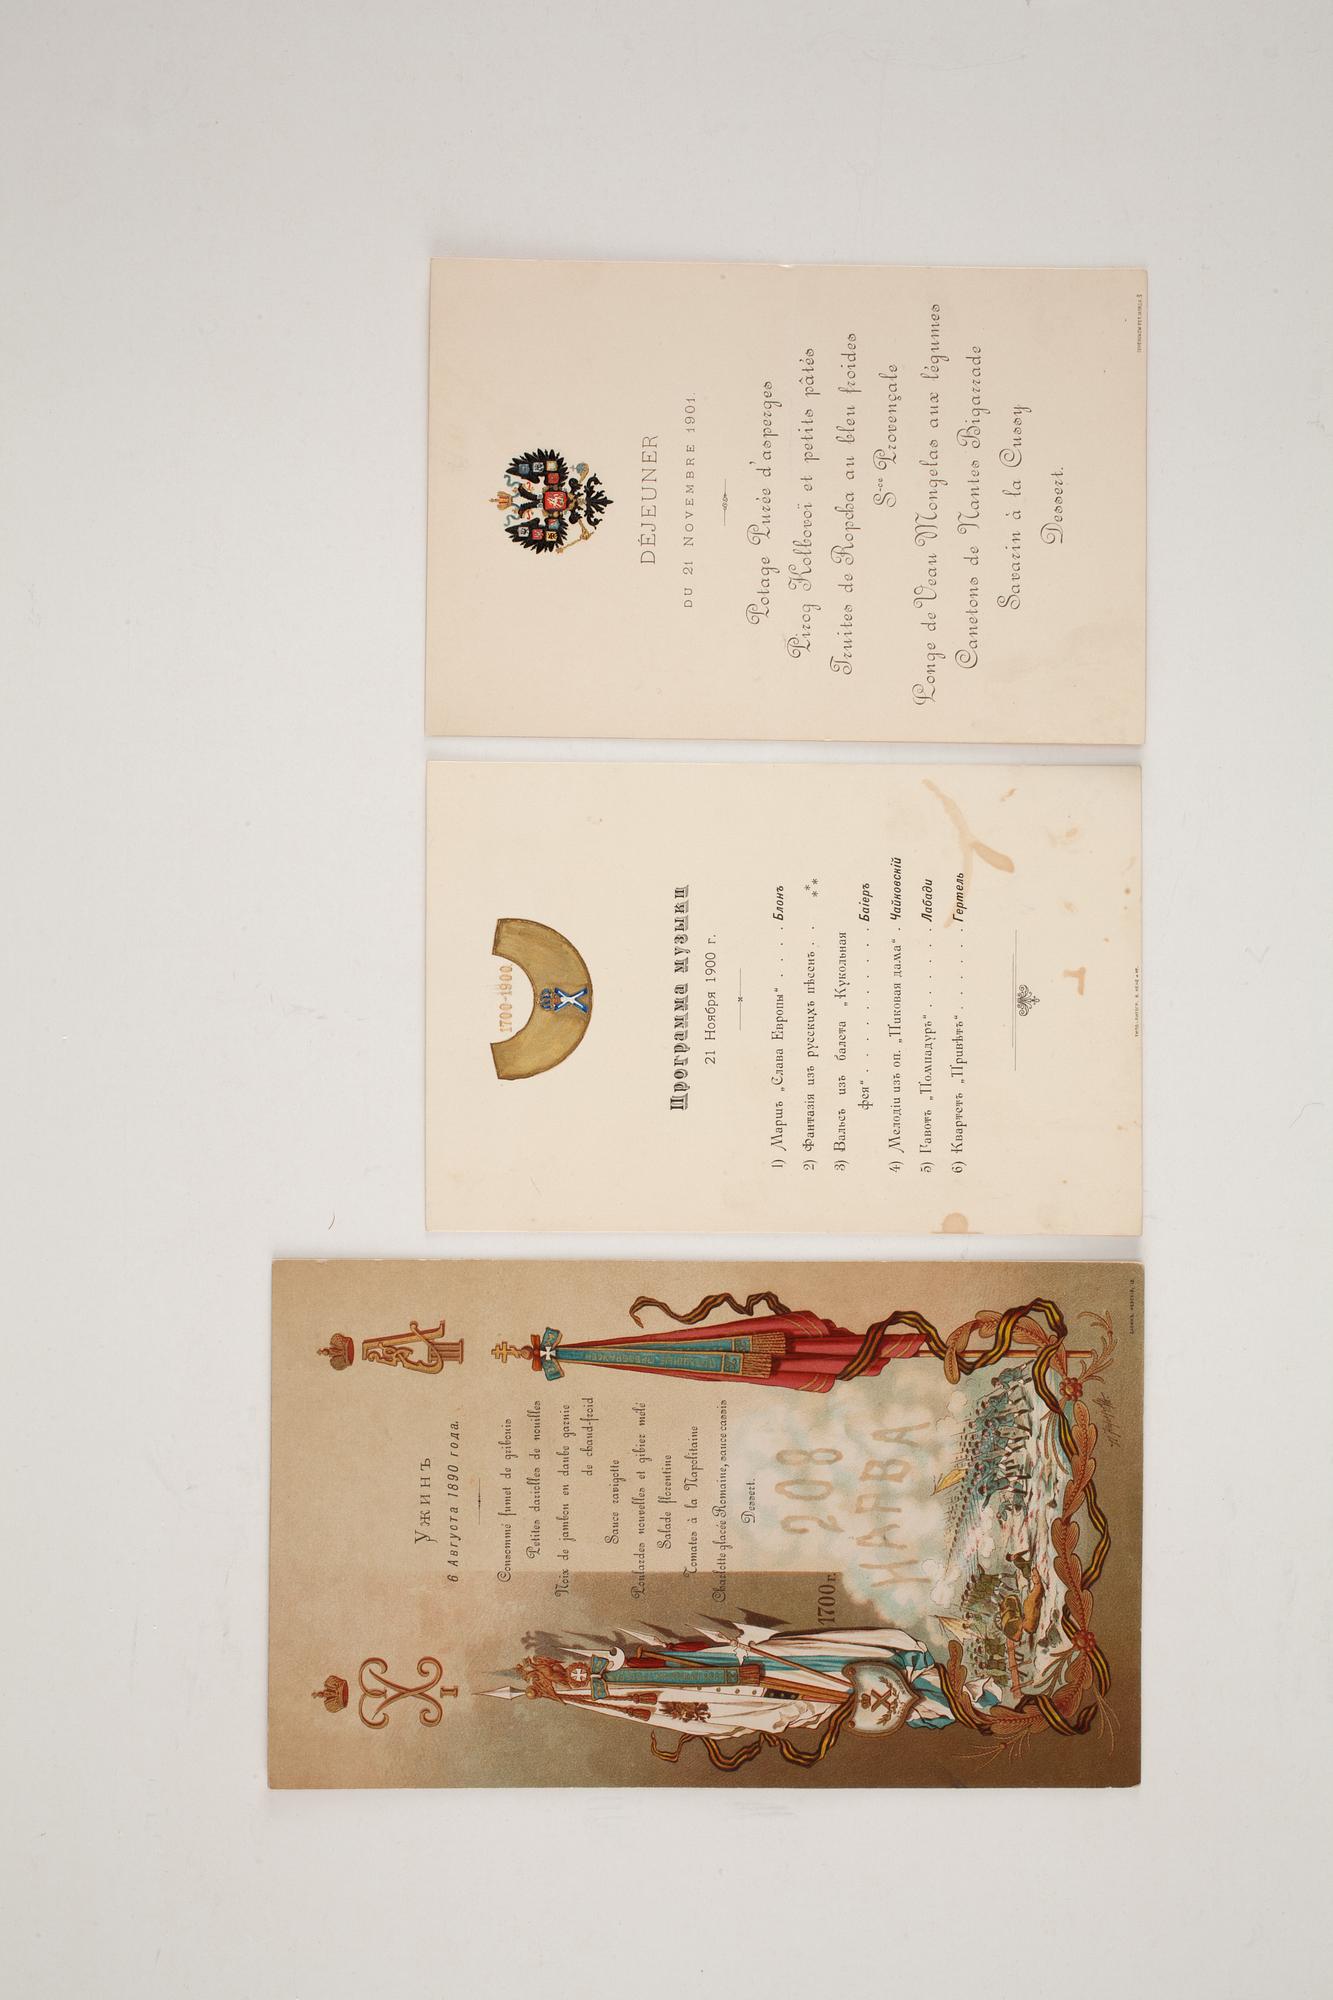 Ужинъ
6 Августа 1890 года.
Consommé fumet de gribouis
Petites darioles de nouilles
Noix de jambon en daube garnie
de chaud-froid
Sauce ravigotte
Poulardes nouvelles et gibier mêlé
Salade florentine
Tomates à la Napolitaine
Charlotte glacée Romaine, sauce cassis
Dessert.
1700 г.
208
НАРВА
1700-1900
Программа музыки
21 Ноября 1900 г.
1) Маршъ „Слава Европы“ . . . . Блонъ
2) Фантазія изъ русскихъ пѣсенъ . . ***
3) Вальсъ изъ балета „Кукольная
фея“ . . . . . . . . . . Баіеръ
4) Мелодіи изъ оп. „Пиковая дама“ . Чайковскій
5) Гавотъ „Помпадуръ“ . . . . . Лабади
6) Квартетъ „Привѣтъ“ . . . . . Гертель
DÉJEUNER
DU 21 NOVEMBRE 1901.
Potage Purée d'asperges
Pirog Kolbovoï et petits pâtés
Truites de Ropcha au bleu froides
S-ce Provençale
Longe de Veau Mongelas aux légumes
Canetons de Nantes Bigarrade
Savarin à la Cussy
Dessert.